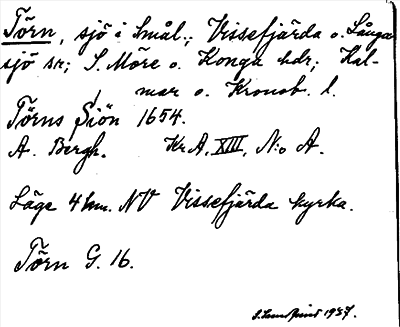 Törn, sjö i Smål.; Vissefjärda o. Långa-
sjö sn; S. Möre o. Konga hdr; Kal-
mar o. Kronob. l.
Törns Siön 1654.
A. Bergh. Kr. A, XIII, N:o A.
Läge 4 km. NV Vissefjärda kyrka.
Törn G. 16.
1937.